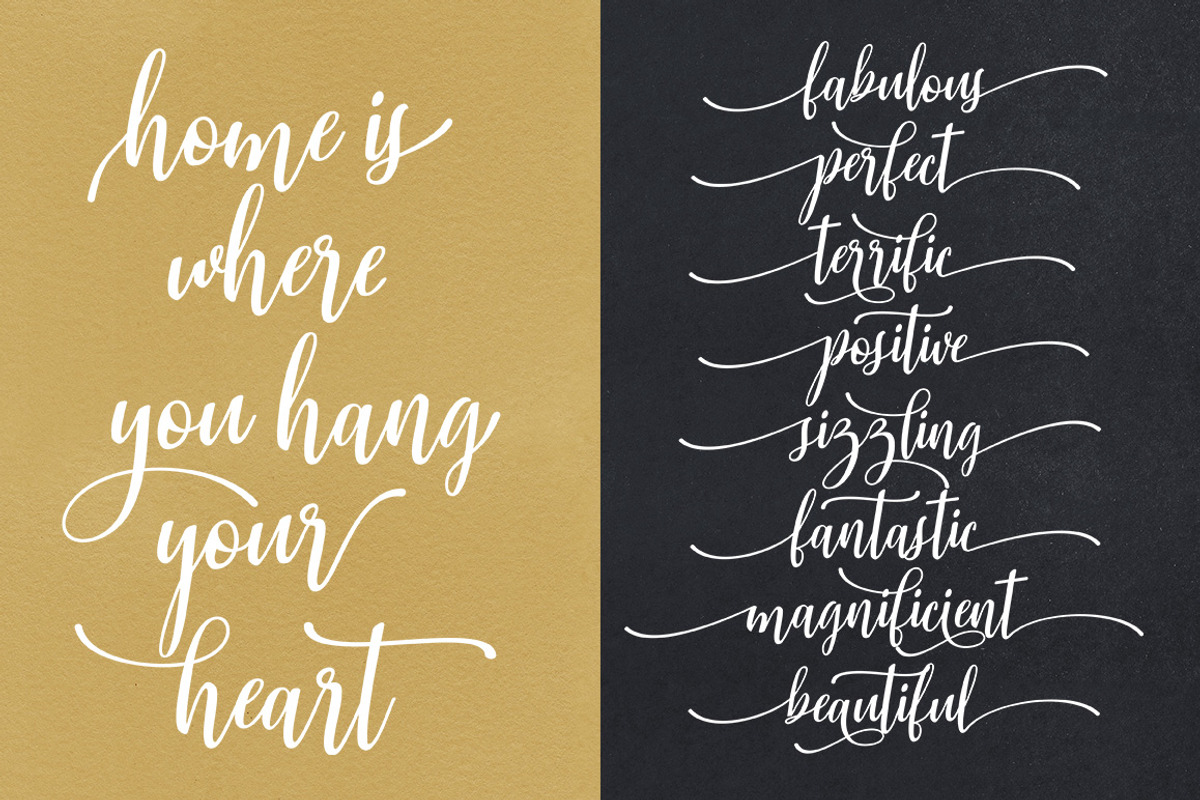 home is
where
you hang
your
heart
fabulous
perfect
terrific
positive
sizzling
fantastic
magnificient
beautiful